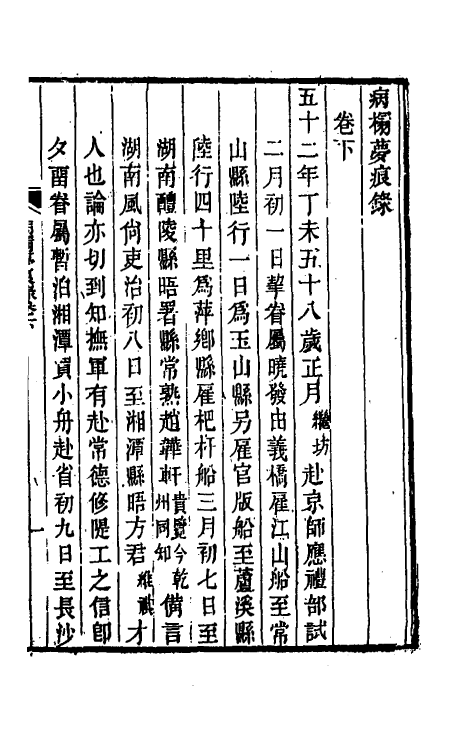 病榻夢痕錄
卷下
五十二年丁未五十八歲正月繼坊赴京師應禮部試
二月初一日挈眷屬曉發由義橋雇江山船至常
山縣陸行一日爲玉山縣另雇官版船至蘆溪縣
陸行四十里爲萍鄉縣雇杷杆船三月初七日至
湖南醴陵縣晤署縣常熟趙韡軒貴覽今乾州同知備言
湖南風尙吏治初八日至湘潭縣晤方君維祺才
人也論亦切到知撫軍有赴常德修隄工之信卽
夕畱眷屬暫泊湘潭買小舟赴省初九日至長沙